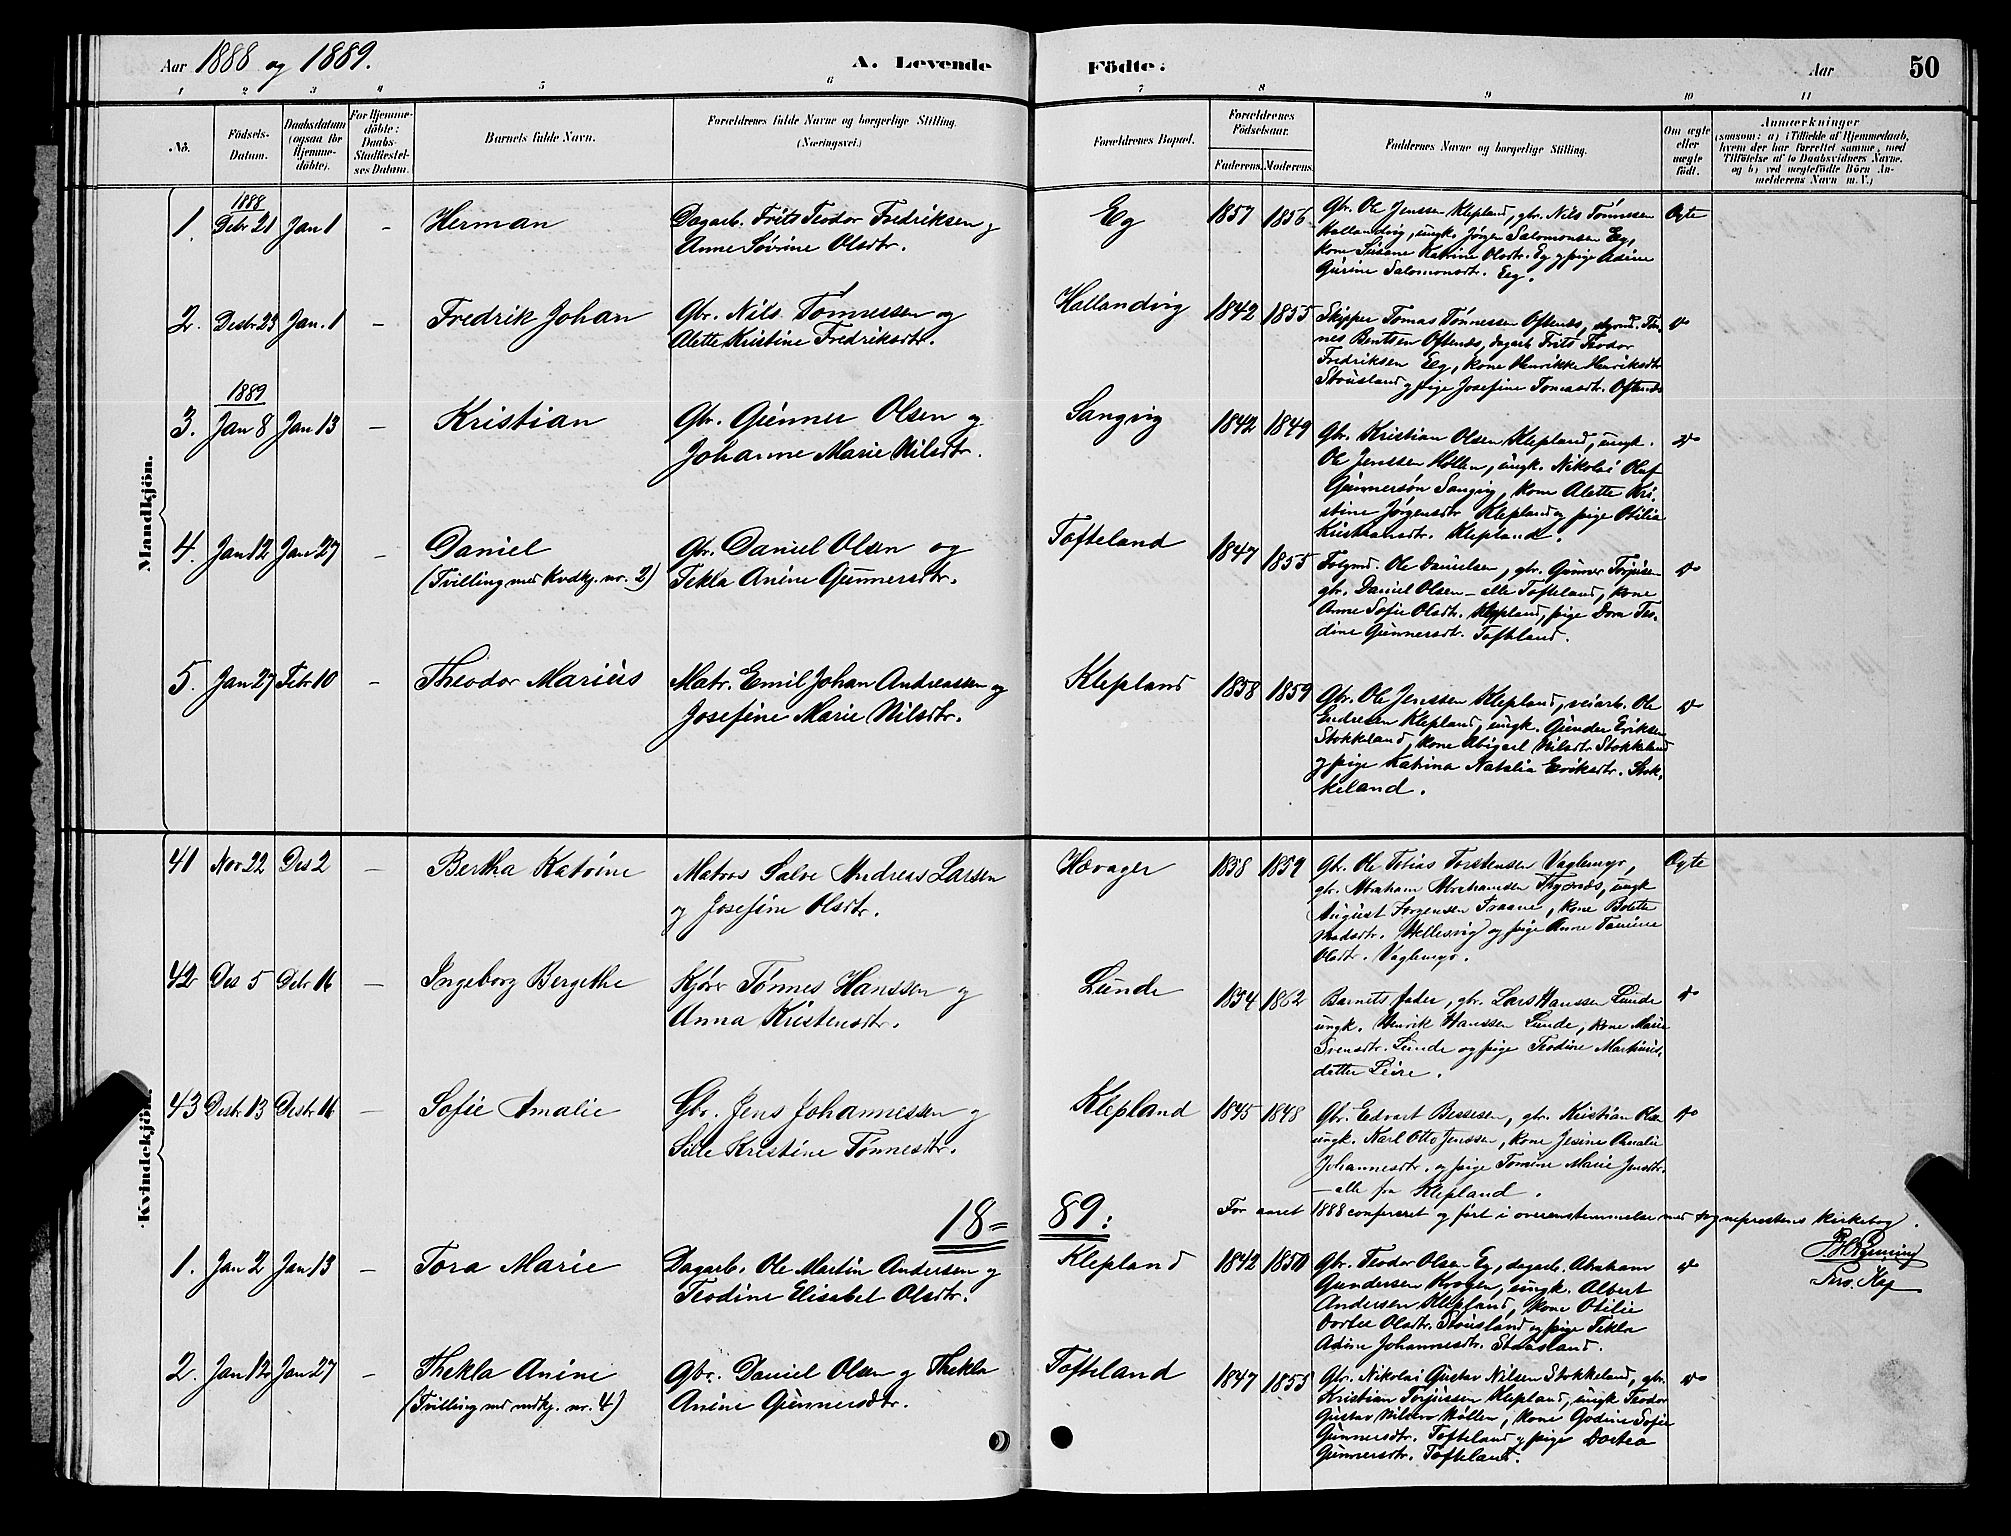 Aar 1888 og 1889.
A. Levende Fødte.
Aar 50
1 2 3 4 5 6 7 8 9 10 11
No.
Födsels-Datum.
Daabsdatum (ogsaa for Hjemmedöbte).
For Hjemmedöbte: Daabs-Stadfæstelses Datum.
Barnets fulde Navn.
Forældrenes fulde Navne og borgerlige Stilling. (Næringsvei.)
Forældrenes Bopæl.
Forældrenes Födselsaar.
Faderens. Moderens.
Faddernes Navne og borgerlige Stilling.
Om ægte eller uægte födt.
Anmærkninger
(saasom: a) i Tilfælde af Hjemmedaab,
hvem der har forrettet samme, med
Tilföielse af to Daabsvidners Navne,
og b) ved uægtefödte Börn An-
melderens Navn m. V.)
Mandkjön.
1888
1. Debr 21 Jan 1 - Herman
Dagarb. Frits Teodor Fredriksen og
Anne Sovine Olsdtr.
Eg 1857 1856
Gbr. Ole Jenssen Klepland, gbr. Nils Tønnessen
Hallandvig, ungk. Jørgen Salomonsen Eg,
kone Susane Katrine Olsdtr. Eg og pige Adine
Gurine Salomonsdtr. Eeg.
Ægte
2. Desbr 23 Jan. 1 - Fredrik Johan
Gbr. Nils Tønnessen og
Alette Kristine Fredriksdtr.
Hallandvig 1842 1855
Skipper Tomas Tønnessen Oftenes, styrmd. Tøn-
nes Bentsen Oftenæs, dagarb Frits Teodor
Fredriksen Eeg, kone Henrikke Henriksdtr
Stousland og pige Josefine Tomasdt. Oftenæs
1889
3. Jan 8 Jan 13 - Kristian
Gbr. Gunner Olsen og
Johanne Marie Nilsdtr.
Sangvig 1842 1849
Gbr. Kristian Olsen Klepland, ungk.
Ole Jenssen Høllen, ungk. Nikolai Oluf
Gunnersøn Sangvig, kone Alette Kri-
stine Jørgensdtr Klepland og pige Otilia
Kristiansdtr. Klepland.
4. Jan 12 Jan 27 - Daniel
(Tvilling med Kvdkj. nr. 2)
Gbr. Daniel Olsen og
Tekla Anine Gunnersdtr.
Tofteland 1847 1855
Folgmd. Ole Danielsen, gbr. Gunner Torjusen
gbr. Daniel Olsen - alle Tofteland, kone
Anne Sofie Olsdtr. Klepland, pige Dora Teo-
dine Gunnersdt. Tofteland.
5. Jan 27 Febr 10 - Theodor Marius
Matr. Emil Johan Andreassen og
Josefine Marie Nilsdtr.
Klepland 1858 1859
Gbr. Ole Jenssen Klepland, veiarb. Ole
Endresen Klepland, ungk. Gunder Eriksen
Stokkeland, kone Abigael Nilsdtr. Stokkeland
og pige Katrina Natalia Eriksdtr. Stok-
keland.
Kvindekjön.
41 Nov 22 Des 2 - Bertha Katrine
Matros Salve Andreas Larsen
og Josefine Olsdtr.
Hævager 1858 1859
Gbr. Ole Tobias Torstensen Vaglemyr,
gbr. Abraham Abrahamsen, ungk
August Jørgensen Traane, kone Bolette
Hellesvig og pige Anne Tomine
Olsdtr. Vaglemyr.
Ægte
42 Des 5 Debr 16 - Ingeborg Bergethe
Kjörer Tønnes Hanssen og
Anna Kristensdtr.
Lunde 1854 1862
Barnets fader, gbr. Lars Hanssen Lunde
ungk. Henrik Hanssen Lunde, kone Marie
Svensdtr. Lunde og pige Teodine Martinius-
datter Leire.
43 Desbr 13 Desbr 16 - Sofie Amalie
Gbr. Jens Johannessen og
Sille Kristine Tønnesdtr.
Klepland 1845 1848
Gbr. Edvart Bessesen, gbr. Kristian Olsen
ungk. Karl Otto Jenssen, kone Jesine Amalie
Johannesdtr. og pige Tomine Marie Jensdtr.
- alle fra Klepland.
For aaret 1888 confereret og ført i overensstemmelse med sogneprestens kirkebog.
18=89:
1. Jan 2 Jan 13 - Tora Marie
Dagarb. Ole Martin Andersen og
Teodine Elisabet Olsdtr.
Klepland 1842 1850
Gbr. Teodor Olsen Eg, dagarb. Abraham
Gundersen Krogen, ungk. Albert
Andersen Klepland, kone Otilie
Dortea Olsdtr. Stousland og pige Tekla
Adine Johannesdtr. Stousland.
Pers. Kap
2. Jan 12 Jan 27 - Thekla Anine
(Tvilling med mdkj. nr. 4)
Gbr. Daniel Olsen og Thekla
Anine Gunnersdtr.
Tofteland 1847 1855
Gbr. Nikolai Gustav Nilsen Stokkeland, gbr.
Kristian Torjussen Klepland, ungk Teodor
Gustav Nilsen Høllen, kone Godine Sofie
Gunnersdtr. Tofteland og pige Dortea
Gunnersdtr. Tofteland.